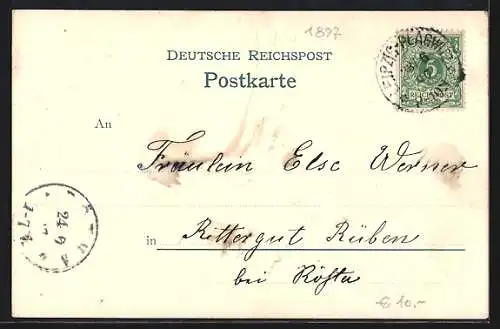 1897
DEUTSCHE REICHSPOST
Postkarte
LEIPZIG-PLAGWITZ
5
REICHSPOST
An
Fräulein Else Werner
24 9
in Rittergut Rüben
bei Kösta
€ 10,-